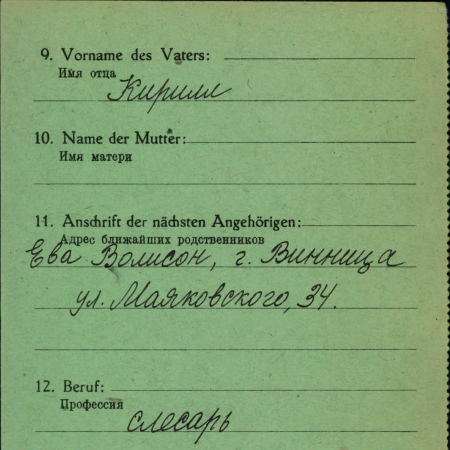 9. Vorname des Vaters:
Имя отца
Кирилл
10. Name der Mutter:
Имя матери
11. Anschrift der nächsten Angehörigen:
Адрес ближайших родственников
Ева Волисон, г. Винница
ул. Маяковского, 34.
12. Beruf:
Профессия
слесарь